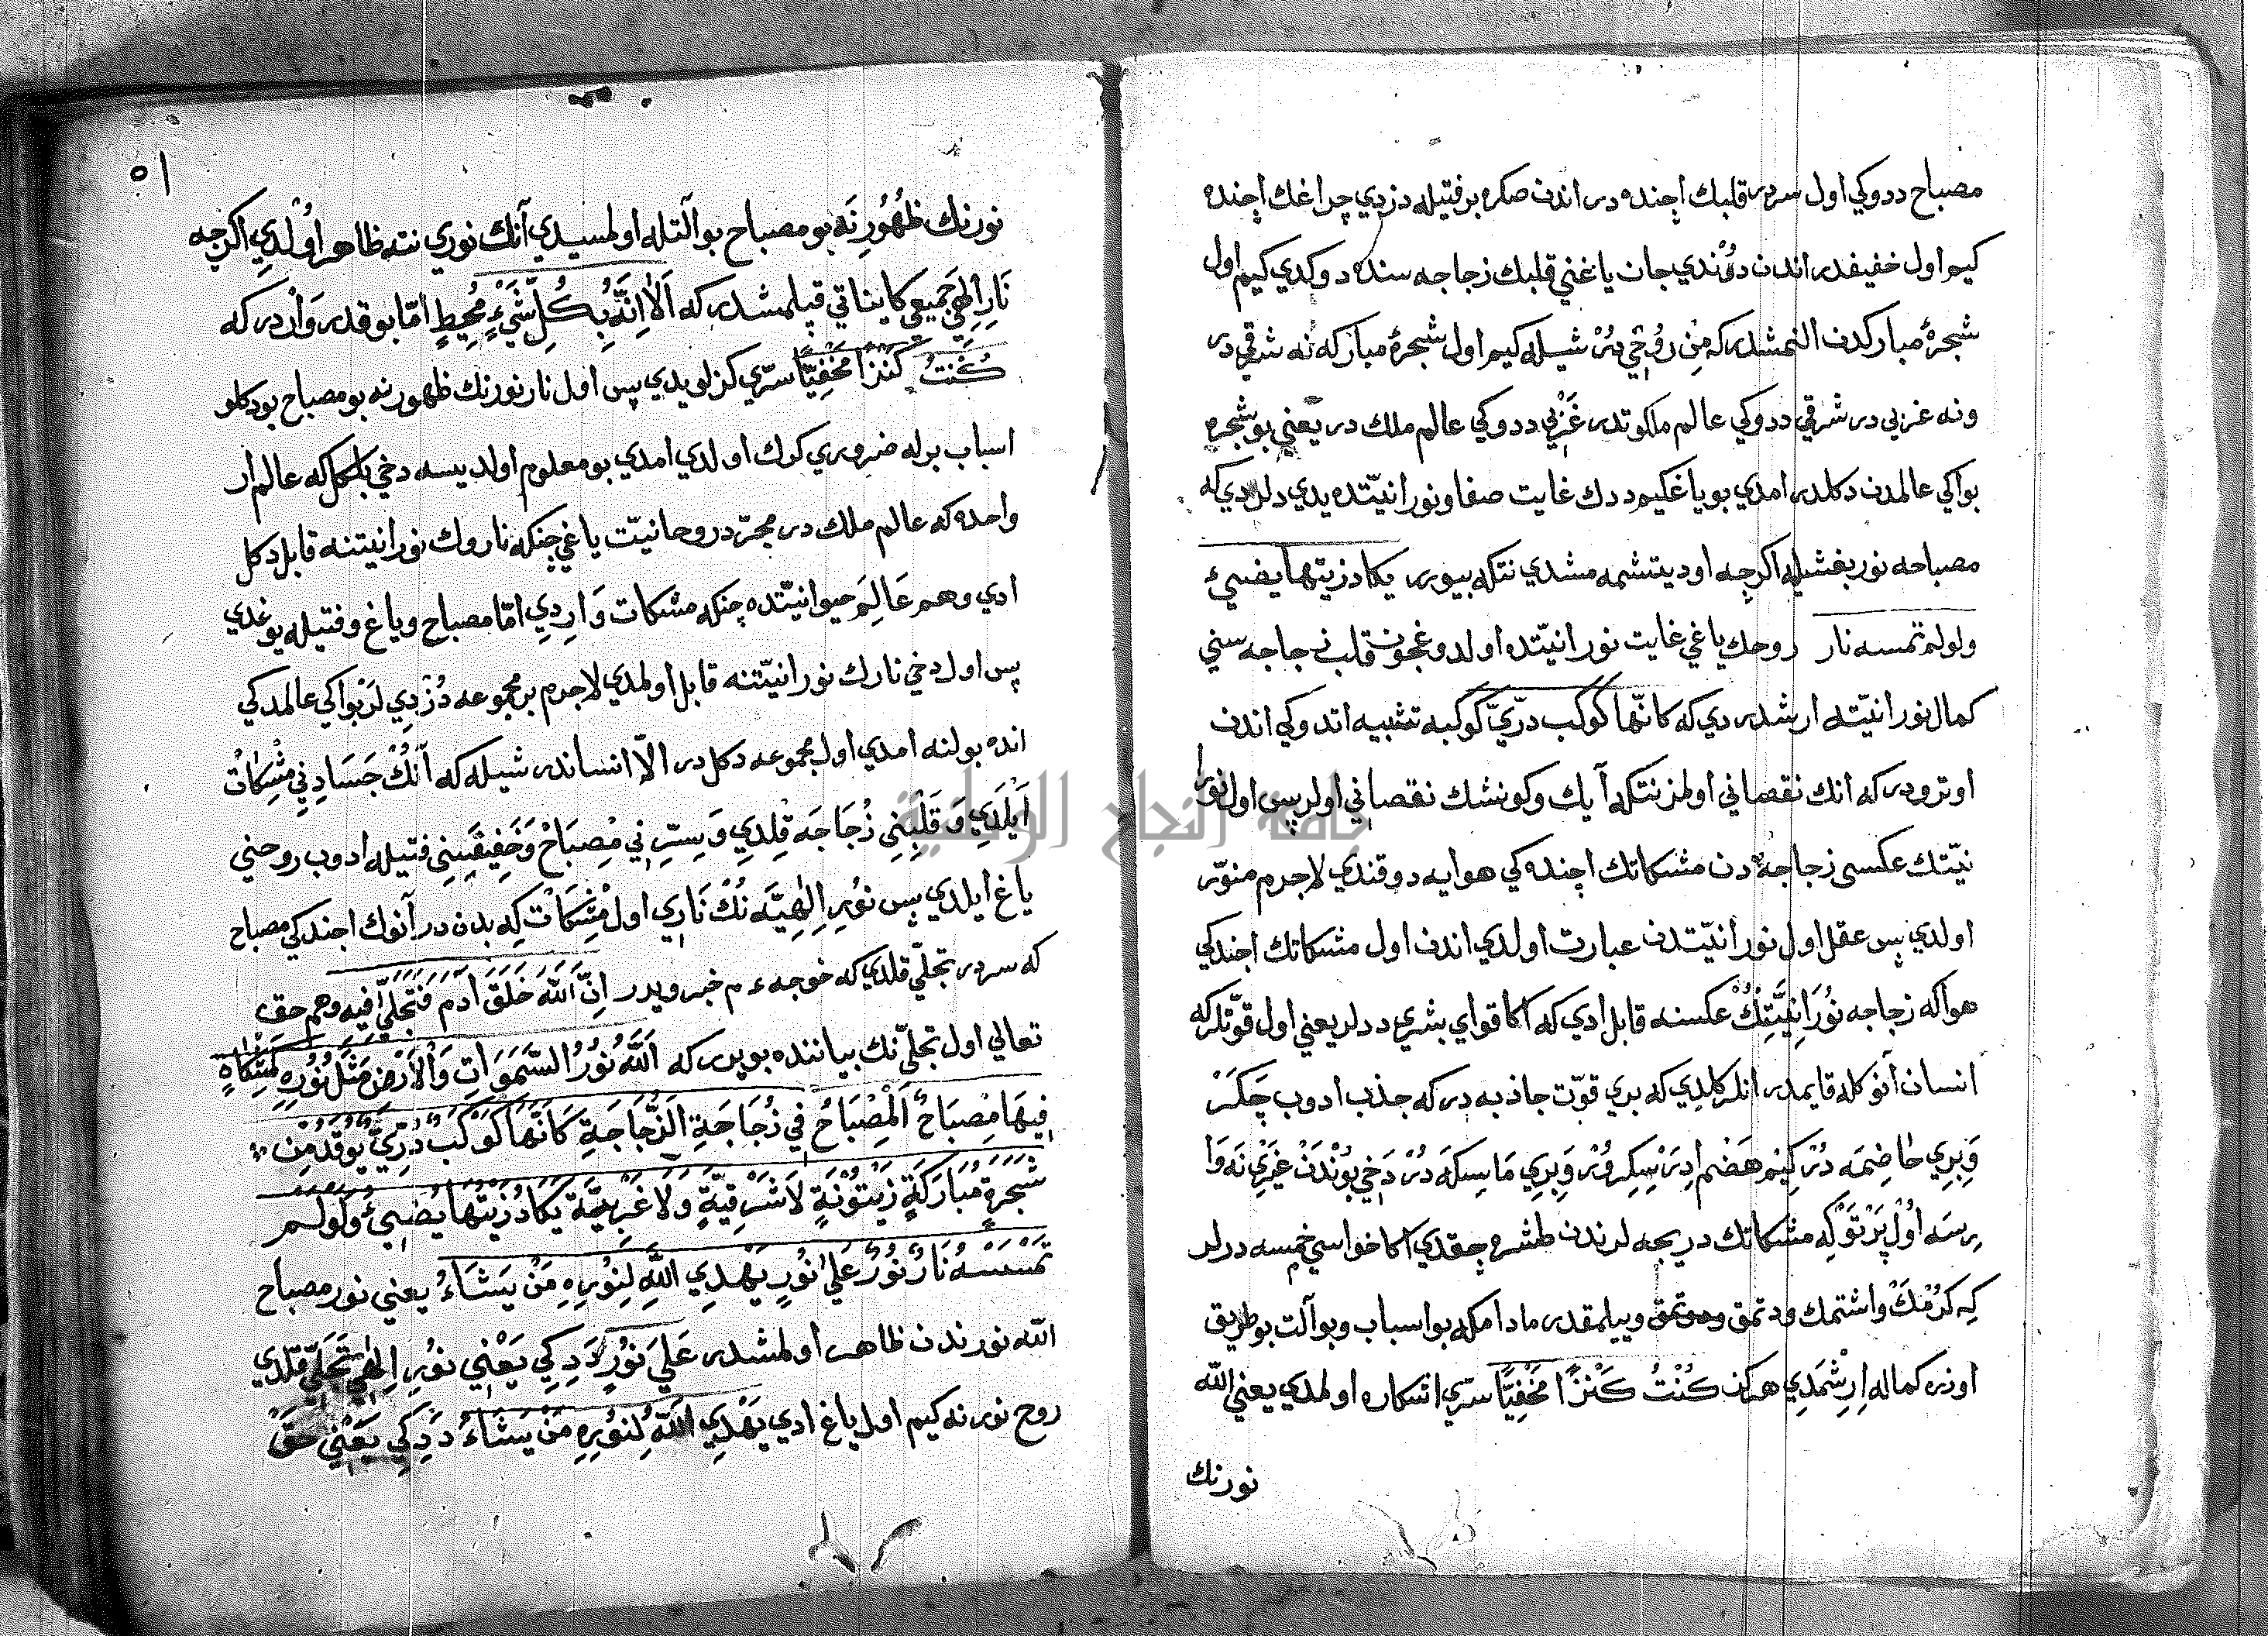 مصباح ددوكي اول سردر قلبك اچنده در اندن صكره بر فتيله دزدي چراغك اچنده
كيم اول خفيفدر اندن دوندي جان ياغني قلبك زجاجه سنده دوكدي كيم اول
شجرهٔ مباركدن النمشدر كه من روحي در شيله كيم اول شجرهٔ مباركه نه شرقي در
ونه غربي در شرقي ددوكي عالم ملكوتدر غربي ددوكي عالم ملك در يعني بو شجره
بو اكي عالمدن دكلدر امدي بو ياغ كيم ددك غايت صفا و نورانيتده يدي دلردي كه
مصباحه نور بغشيله اكرچه اود يتشمه مشدي نتكه بيورر يكاد زيتها يضيئ
ولولم تمسسه نار روحك ياغي غايت نورانيتده اولدوغچون قلب زجاجه سني
كمال نورانيته ارشدردي كه كانها كوكب دري كوكبه تشبيه اتدوكي اندن
اوترودر كه انك نقصاني اولمز نتكه آيك وكونشك نقصاني اولر پس اول نورا
نيتك عكسي زجاجه دن مشكاتك اچنده كي هوايه دوقندي لاجرم منور
اولدي پس عقل اول نورانيتدن عبارت اولدي اندن اول مشكاتك اچندكي
هوا كه زجاجه نورانيتنك عكسنه قابل ادي كه اكا قواي بشري ددلر يعني اول قوتلر كه
انسان آنوكله قايمدر انلر كلدي كه بري قوت جاذبه در كه جذب ادوب چكر
وبري هاضمه در كيم هضم ادر سكر وبري ماسكه در دخي بوندن غيري نه وا
رسه اول پرتو كه مشكاتك دريجه لرندن طشره چقدي اكا حواسي خمسه ددلر
كه كرمك واشتمك ودتمق وبيلمقدر مادامكه بو اسباب وبو آلت بو طريق
اوزره كماله ارشمدي هركز كنت كنزا مخفيا سري اشكاره اولمدي يعني الله
نورنك
٥١
نورنك ظهورنه بو مصباح بو آلتله اولمسيدي آنك نوري نته ظاهر اولدي اكرچه
نار الهي جميعي كايناتي قپلمشدر كه الا انه بكل شيء محيط اما بو قدر وار در كه
كنت كنزا مخفيا سري كزلويدي پس اول نار نورنك ظهورنه بو مصباح بو دكلو
اسباب برله ضروري كرك اولدي امدي بو معلوم اولديسه دخي بلكل كه عالم ار
واحده كه عالم ملك در مجرد روحانيت ياغي چنكه نارك نورانيتنه قابل دكل
ادي وهم عالم حيوانيتده چنكه مشكات واردي اما مصباح وياغ وفتيله يوغدي
پس اول دخي نارك نورانيتنه قابل اولمدي لاجرم بر مجموعه دزدي لر بو اكي عالمدكي
انده بولنه امدي اول مجموعه دكل در الا انساندر شيله كه آنك جسدني مشكات
ايلدي وقلبني زجاجه قلدي وسرني مصباح وخفيفني فتيله ادوب روحني
ياغ ايلدي پس نور الهيته نك ناري اول مشكات كه بدن در آنوك اچندكي مصباح
كه سردر تجلي قلدي كه خوجه ءم خبر ويرر ان الله خلق آدم فتجلي فيه وهم حق
تعالي اول تجلي نك بياننده بويرر كه الله نور السموات والارض مثل نوره كمشكاة
فيها مصباح المصباح في زجاجة الزجاجة كانها كوكب دري يوقد من
شجرة مباركة زيتونة لا شرقية ولا غربية يكاد زيتها يضيئ ولولم
تمسسه نار نور علي نور يهدي الله لنوره من يشاء يعني نور مصباح
الله نورندن ظاهر اولمشدر علي نور ددكي يعني نور الهي تجلي قلدي
روح نورنه كيم اول ياغ ادي يهدي الله لنوره من يشاء ددكي يعني حق
جامعة النجاح الوطنية